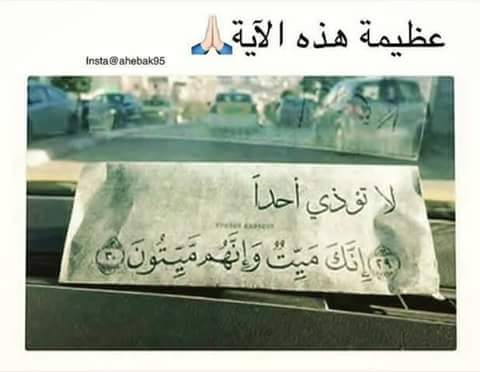 عظيمة هذه الآية🙏🏻
Insta@ahebak95
لا تؤذي أحداً
﴿٢٩﴾ إِنَّكَ مَيِّتٌ وَإِنَّهُم مَّيِّتُونَ ﴿٣٠﴾